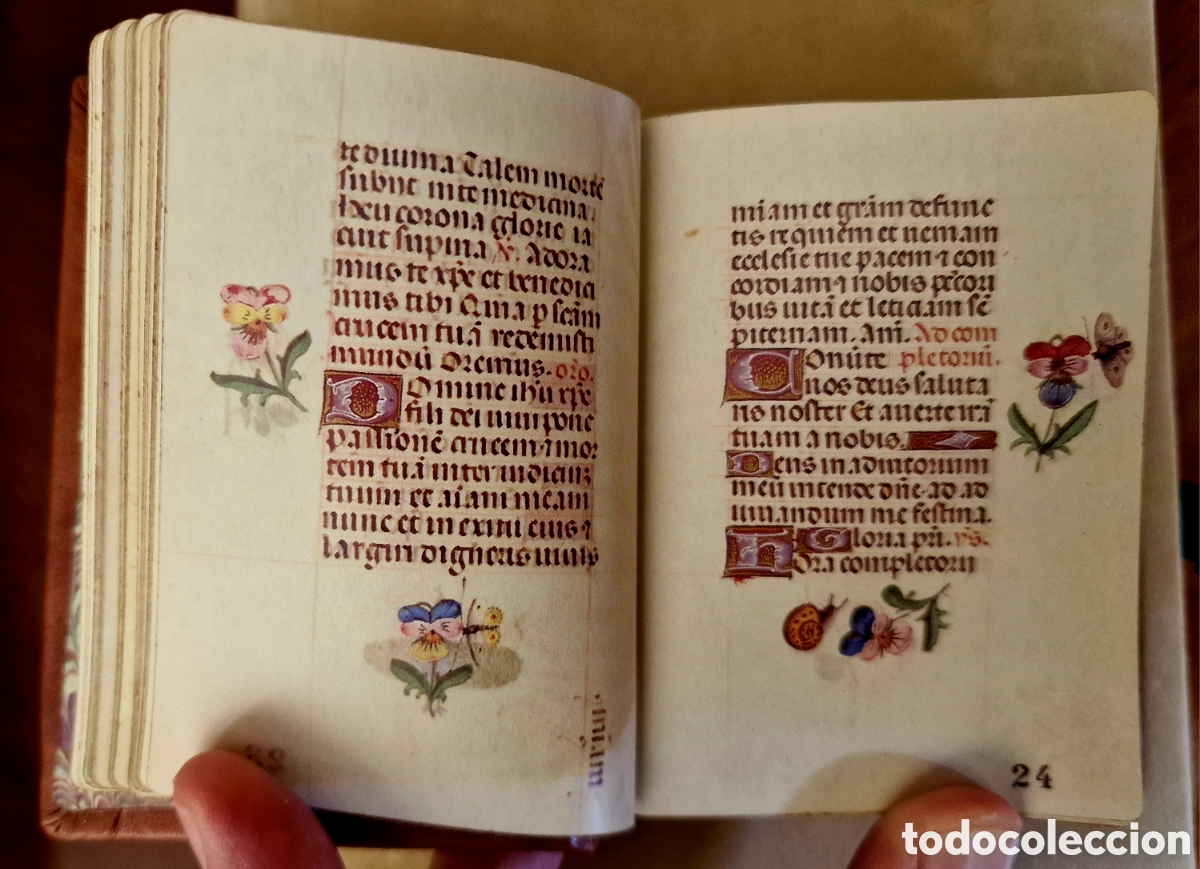 te diuina Talem mortē
subijt in te medicina.
Heu corona glorie ia
cuit supina ℣. Adora
mus te xp̄e et benedici
mus tibi Quia p scām
crucem tuā redemisti
mundū Oremus. oro.
Domine ihū xp̄e
fili dei uiui pone
passionē crucem ⁊ mor
tem tuā inter iudiciū
tuum et aīam meam
nunc et in exitu eius ⁊
largiri digneris uiuis
miam
miam et grām defunc
tis requiem et ueniam
ecclesie tue pacem ⁊ con
cordiam ⁊ nobis pctori
bus uitā et leticiam sē
piternam. Am̄. Ad com
Conuerte pletoriū.
nos deus saluta
ris noster Et auerte irā
tuam a nobis.
Deus in adiutorium
meū intende dn̄e ad ad
iuuandum me festina.
Gloria pri. ys.
Hora completorii
24
todocoleccion